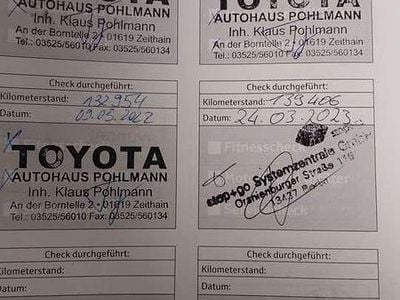 TOYOTA
AUTOHAUS POHLMANN
Inh. Klaus Pohlmann
An der Borntelle 2 · 01619 Zeithain
Tel.: 03525/56010 Fax: 03525/560134
TOYOTA
AUTOHAUS POHLMANN
Inh. Klaus Pohlmann
An der Borntelle 2 · 01619 Zeithain
Tel.: 03525/56010 Fax: 03525/560134
Check durchgeführt:
Kilometerstand: 132954
Datum: 09.05.2022
TOYOTA
AUTOHAUS POHLMANN
Inh. Klaus Pohlmann
An der Borntelle 2 · 01619 Zeithain
Tel.: 03525/56010 Fax: 03525/560134
Check durchgeführt:
Kilometerstand: 139406
Datum: 24.03.2023
Fitnesscheck
stop+go Systemzentrale GmbH
Oranienburger Straße 116
13437 Berlin
Check durchgeführt:
Kilometerstand:
Datum:
Check durchgeführt:
Kilometerstand:
Datum: